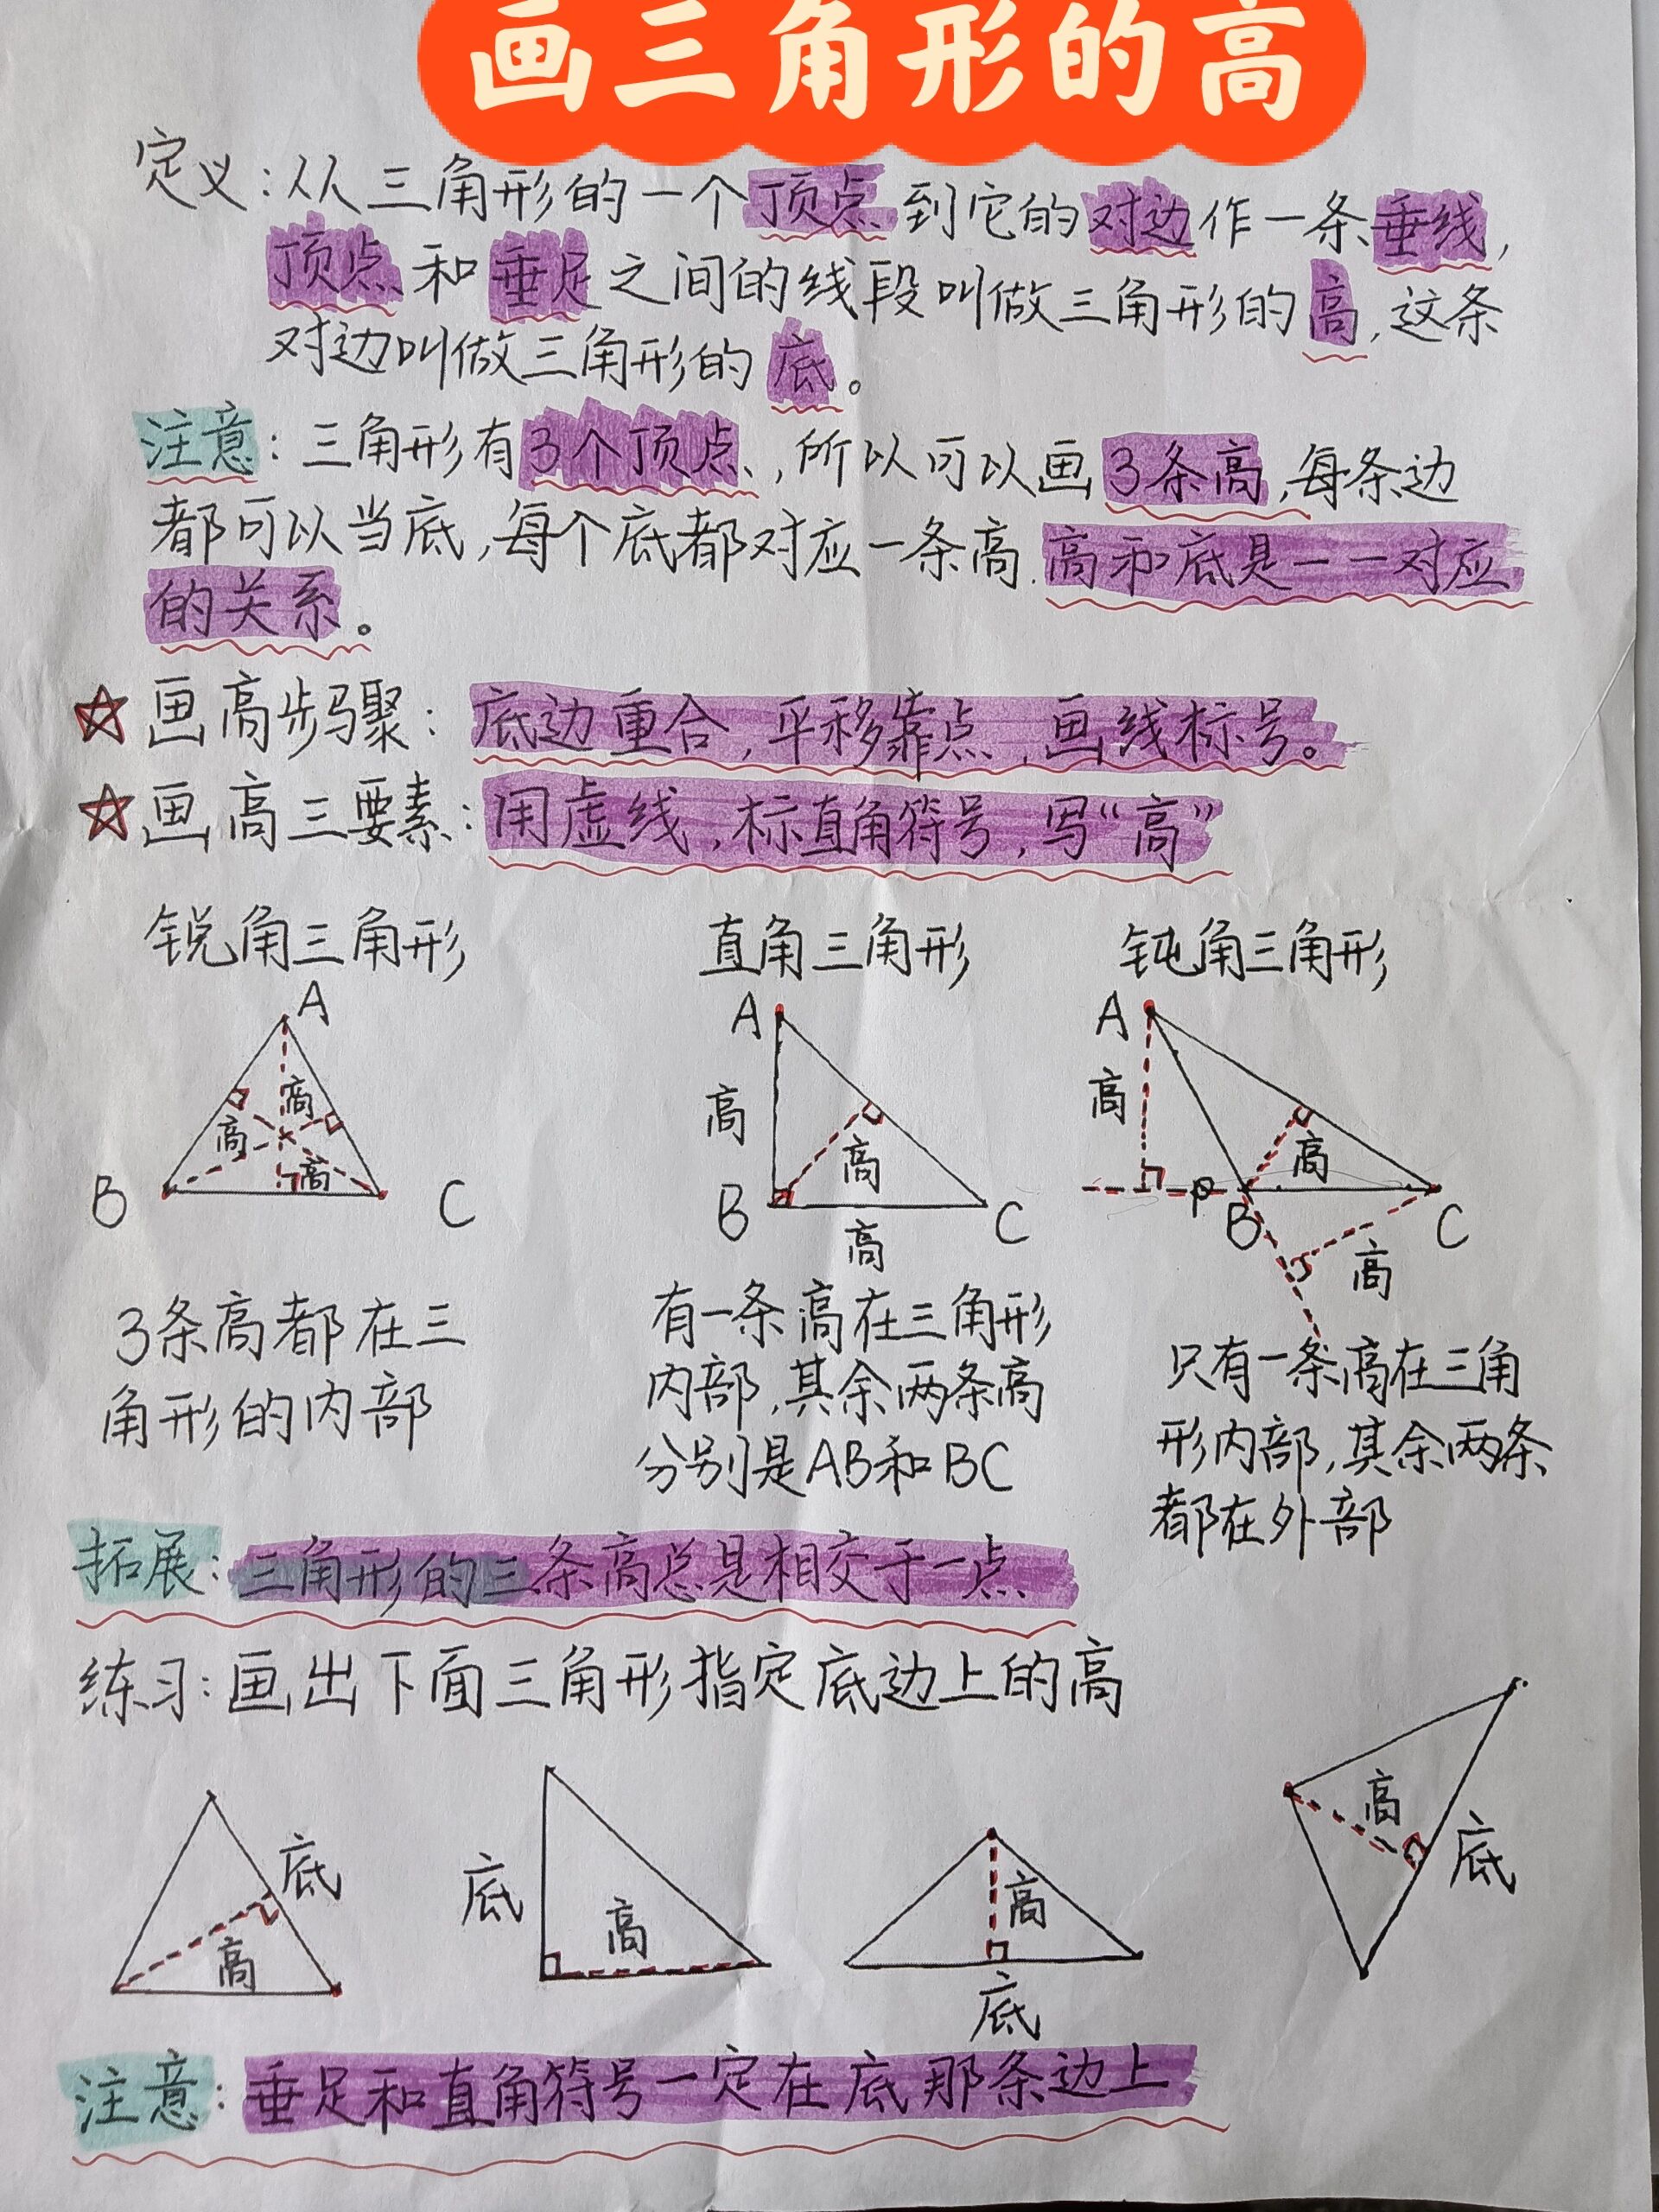 画三角形的高
定义:从三角形的一个顶点到它的对边作一条垂线,
顶点和垂足之间的线段叫做三角形的高,这条
对边叫做三角形的底。
注意:三角形有3个顶点,所以可以画3条高,每条边
都可以当底,每个底都对应一条高.高和底是一一对应
的关系。
☆画高步骤:底边重合,平移靠点,画线标号。
☆画高三要素:用虚线,标直角符号,写“高”
锐角三角形
A
高
高
高
B
C
3条高都在三
角形的内部
直角三角形
A
高
高
B
C
高
有一条高在三角形
内部,其余两条高
分别是AB和BC
钝角三角形
A
高
高
B
C
高
只有一条高在三角
形内部,其余两条
都在外部
拓展:三角形的三条高总是相交于一点
练习:画出下面三角形指定底边上的高
底
高
底
高
高
底
高
底
注意:垂足和直角符号一定在底那条边上